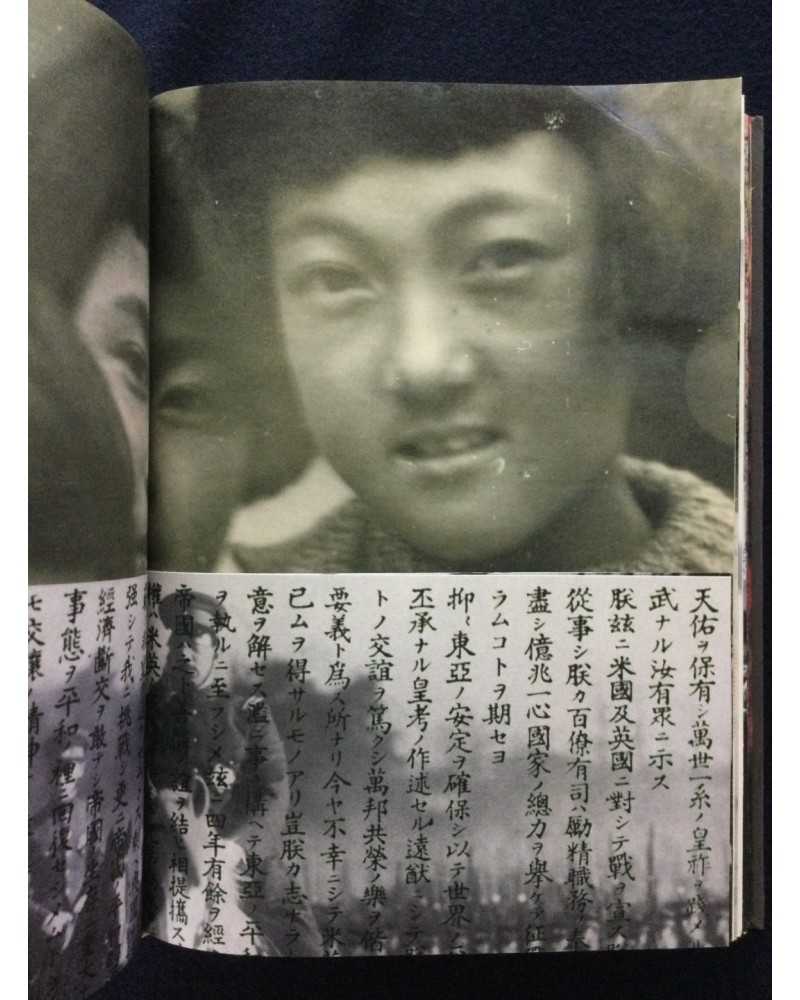 天佑ヲ保有シ萬世一系ノ皇祚ヲ踐メル
武ナル汝有眾ニ示ス
朕玆ニ米國及英國ニ對シテ戰ヲ宣ス
從事シ朕カ百僚有司ハ勵精職務ヲ
盡シ億兆一心國家ノ總力ヲ擧ケテ征
ラムコトヲ期セヨ
抑〻東亞ノ安定ヲ確保シ以テ世界ノ
丕承ナル皇考ノ作述セル遠猷ニシテ
トノ交誼ヲ篤クシ萬邦共榮ノ樂ヲ偕
要義ト爲ス所ナリ今ヤ不幸ニシテ米
已ムヲ得サルモノアリ豈朕カ志ナラ
意ヲ解セス濫ニ事ヲ構ヘテ東亞ノ平
ヲ執ルニ至ラシメ玆ニ四年有餘ヲ經
帝國ハ之ト 誼ヲ結ヒ相提攜ス
權ハ米英
强シテ我ニ挑戰シ更ニ帝國ノ平
經濟斷交ヲ敢テシ帝國ノ生存
事態ヲ平和ノ裡ニ囘復セシメムトシ
モ交讓ノ精神